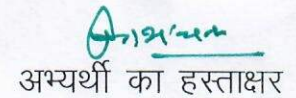 अभ्यर्थी का हस्ताक्षर